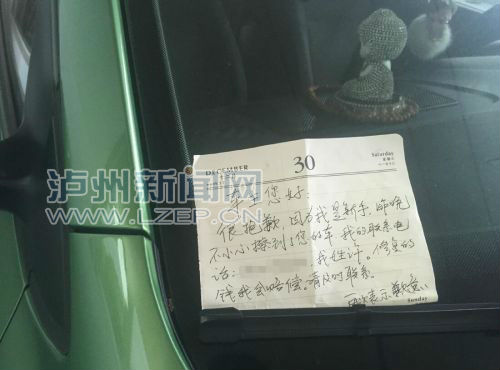 DECEMBER
30
Saturday
车主您好:
很抱歉,因为我是新手,昨晚
不小心擦到了您的车 我的联系电
话: 我姓 修复的
钱我会赔偿.请及时联系.
再次表示歉意.
Sunday
泸州新闻网
WWW.LZEP.CN